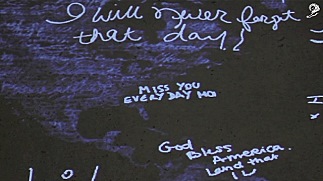 I will never forget
that day!
MISS YOU
EVERY DAY MO
God
Bless
America.
Land that
I L